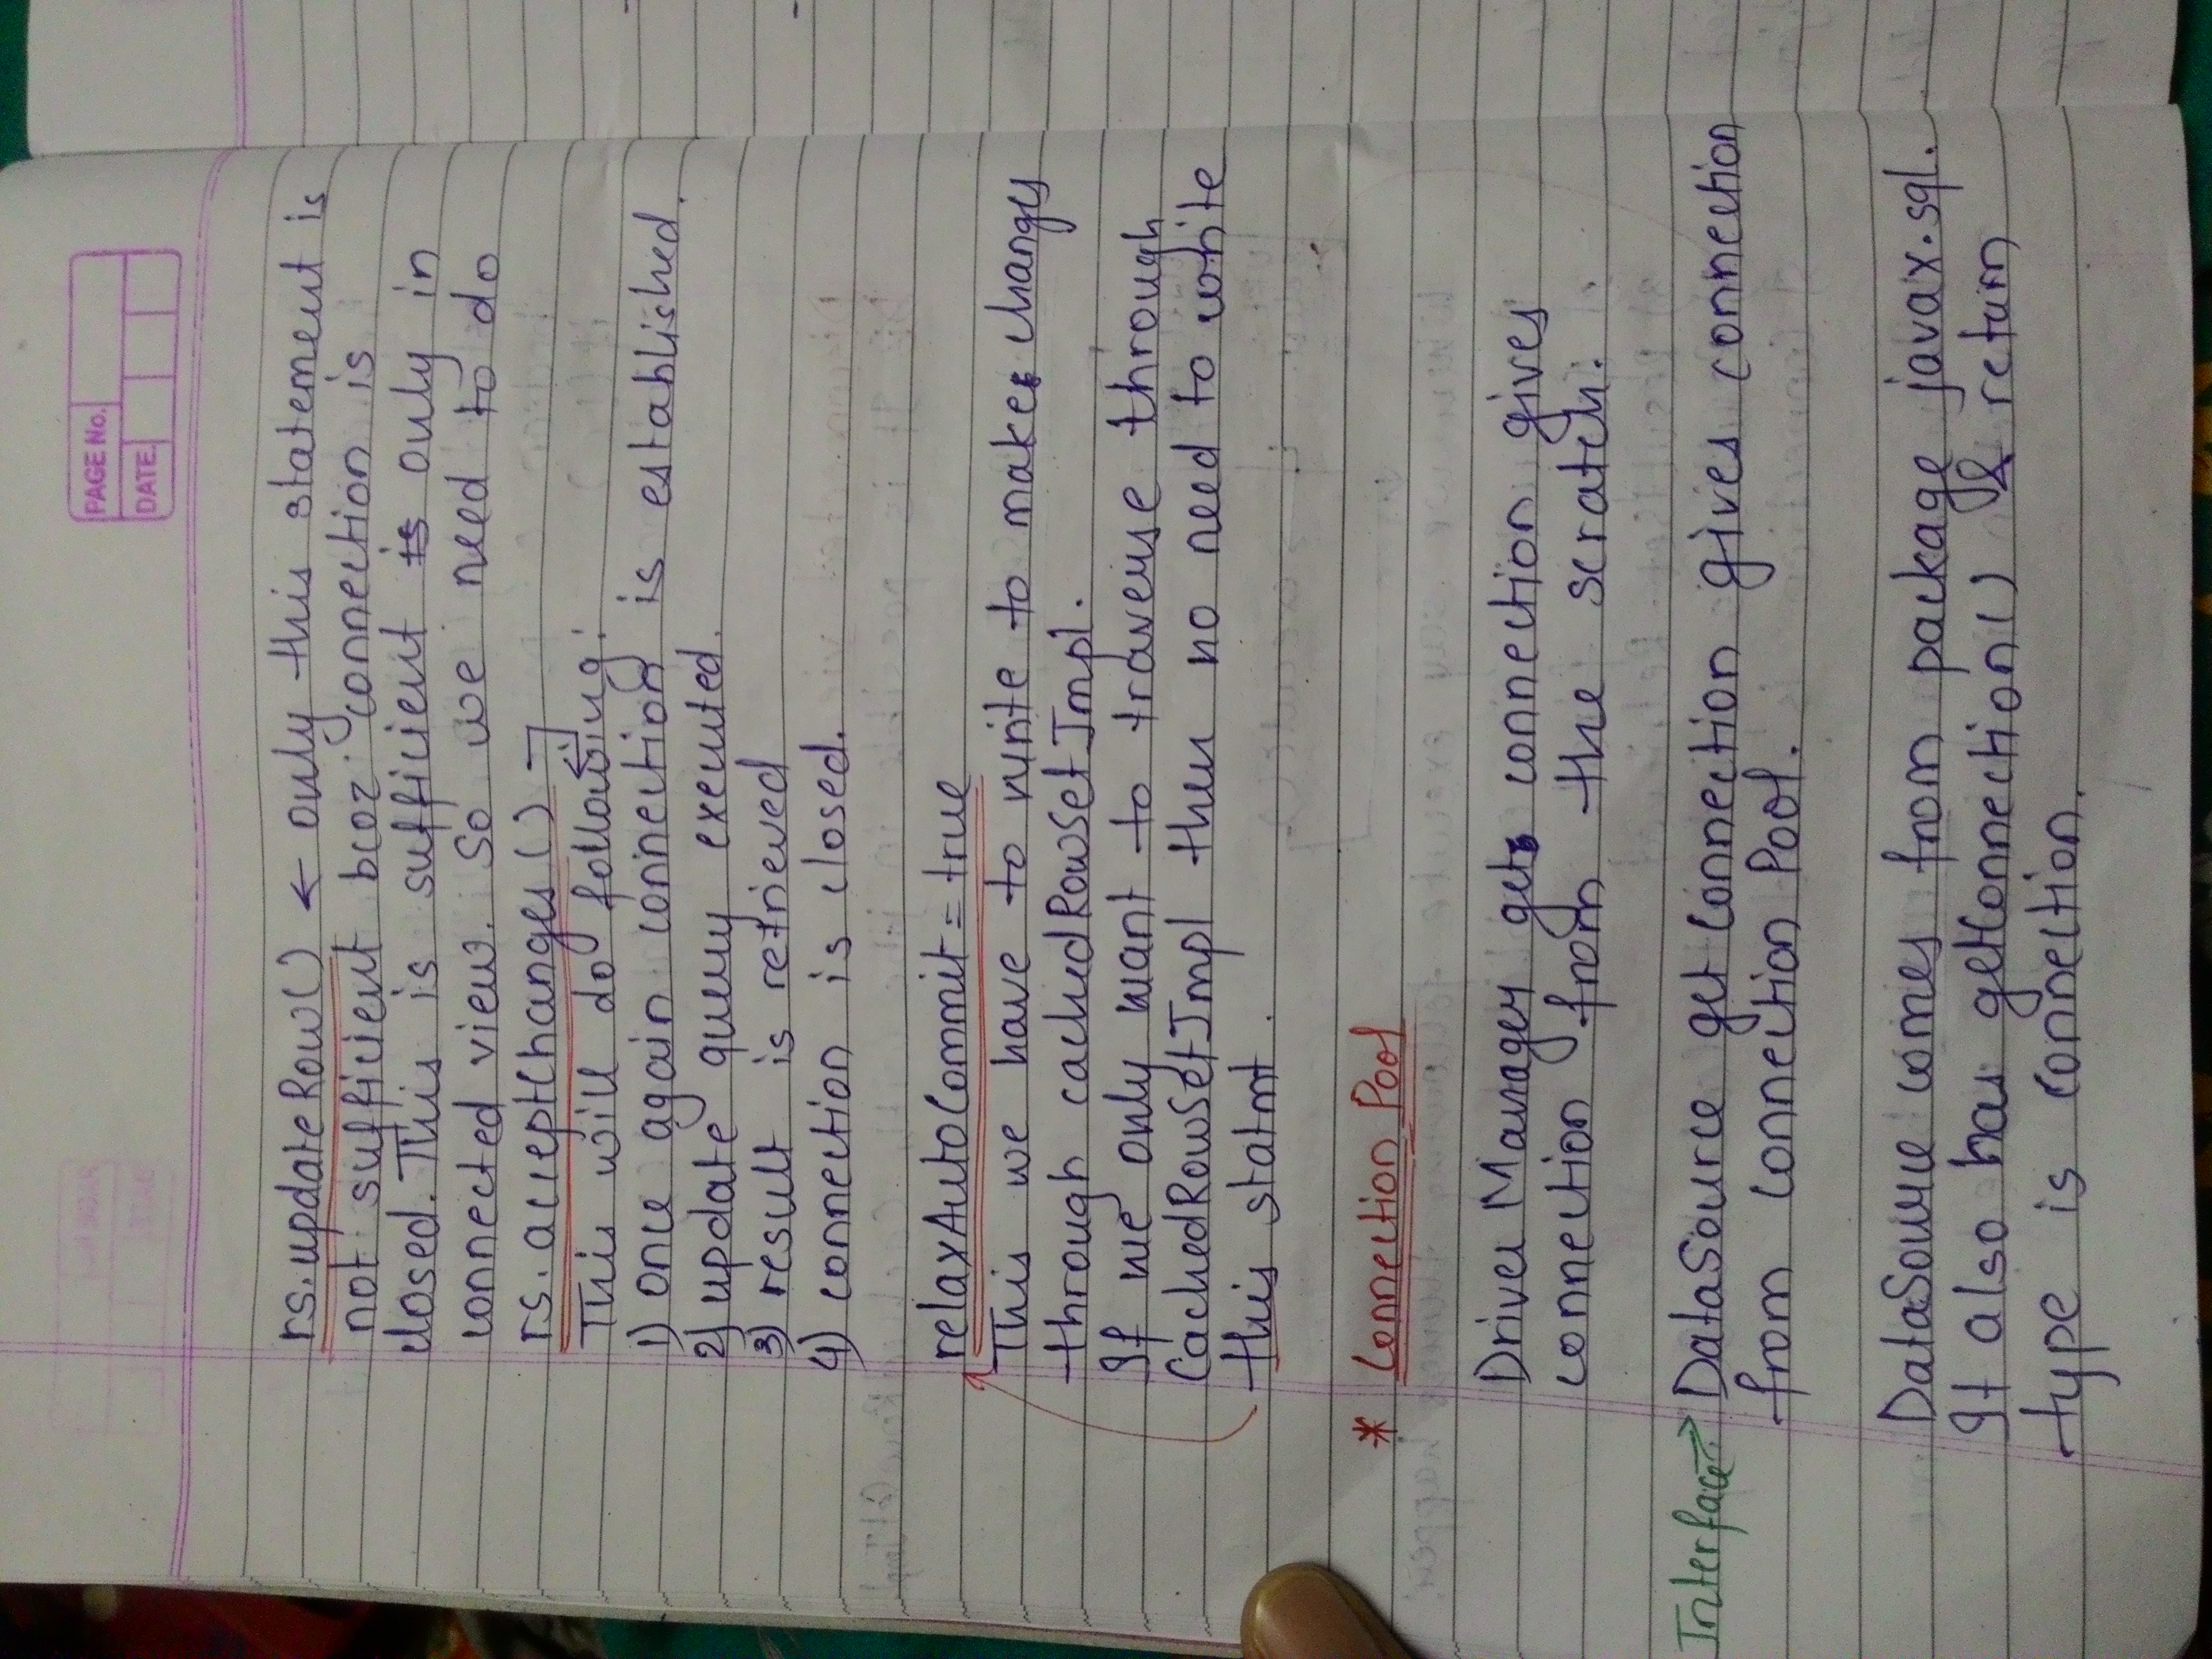 PAGE No.
DATE.
rs.updateRow() ← only this statement is
not sufficient bcoz connection is
closed. This is sufficient is only in
connected view. So we need to do
rs.acceptChanges()
This will do following:
1) once again connection is established.
2) update query executed.
3) result is retrieved
4) connection is closed.
relaxAutoCommit = true
This we have to write to make changes
through cachedRowSetImpl.
If we only want to traverse through
CachedRowSetImpl then no need to write
this statmt.
* Connection Pool
Driver Manager get connection gives
connection from the scratch.
Interface → DataSource get connection gives connection
from connection Pool.
DataSource comes from package javax.sql.
It also has getConnection() & return
type is connection.